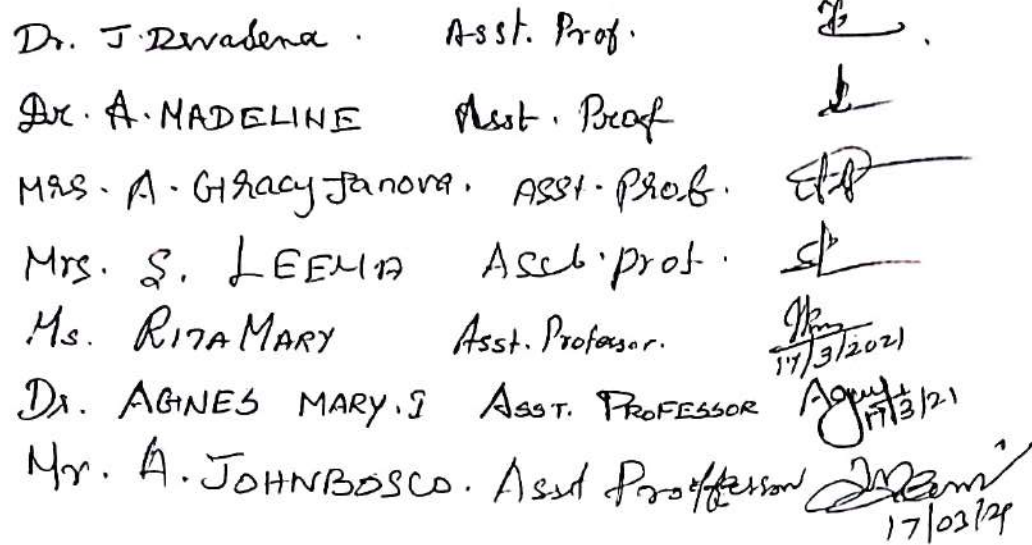 Dr. J. Devadena. Asst. Prof.
Dr. A. MADELINE Asst. Prof
Mrs. A. Gracy Janova. Asst. Prof.
Mrs. S. LEEMA Asst. prof.
Ms. RITA MARY Asst. Professor. 17/3/2021
Dr. AGNES MARY. I ASST. PROFESSOR 17/3/21
Mr. A. JOHNBOSCO. Asst Proffessor 17/03/21